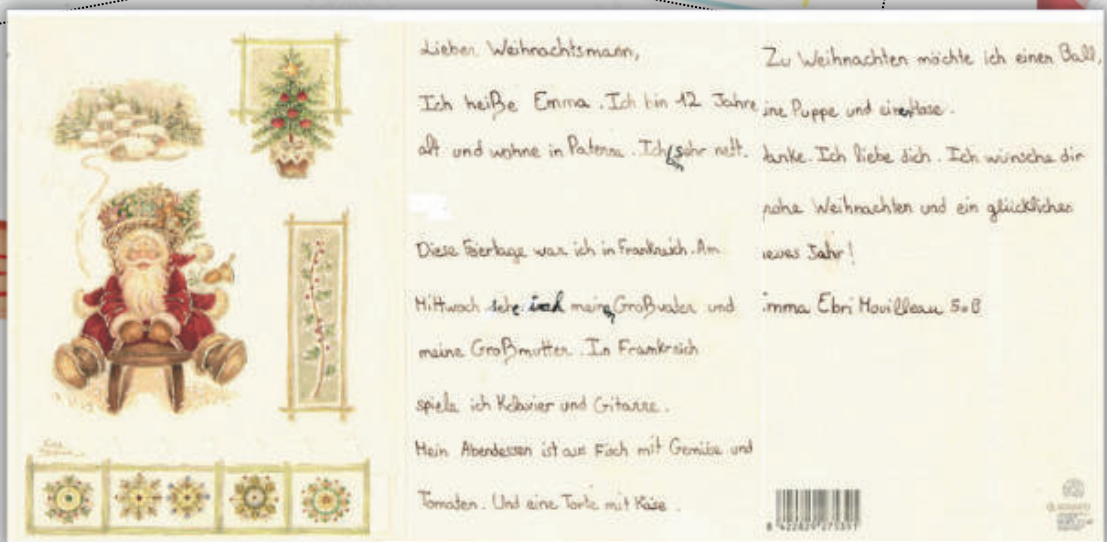 Lieber Weihnachtsmann,
Ich heiße Emma. Ich bin 12 Jahre
alt und wohne in Paterna. Ich sehr nett.
Diese Feiertage war ich in Frankreich. Am
Mittwoch sehe ich meinen Großvater und
meine Großmutter. In Frankreich
spiele ich Klavier und Gitarre.
Mein Abendessen ist aus Fisch mit Gemüse und
Tomaten. Und eine Torte mit Käse.
Zu Weihnachten möchte ich einen Ball,
ine Puppe und einen Hase.
danke. Ich liebe dich. Ich wünsche dir
rohe Weihnachten und ein glückliches
neues Jahr!
mma Ebri
8 422829